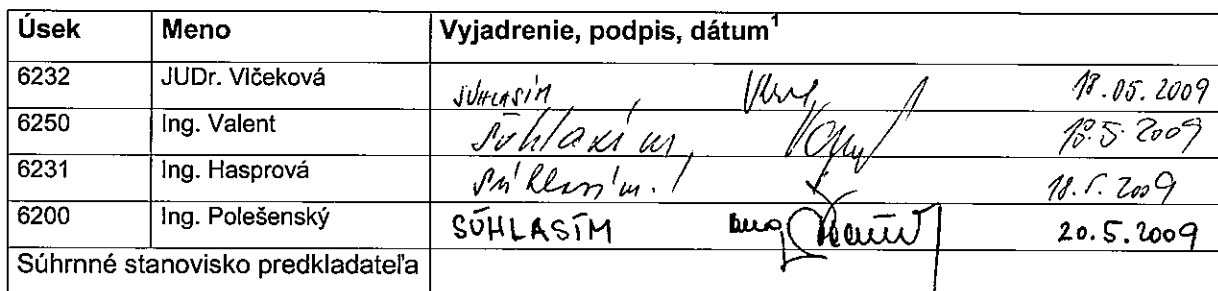 Úsek Meno Vyjadrenie, podpis, dátum¹
6232 JUDr. Vlčeková SÚHLASÍM 18.05.2009
6250 Ing. Valent Súhlasím, 18.5.2009
6231 Ing. Hasprová súhlasím. 18.5.2009
6200 Ing. Polešenský SÚHLASÍM 20.5.2009
Súhrnné stanovisko predkladateľa